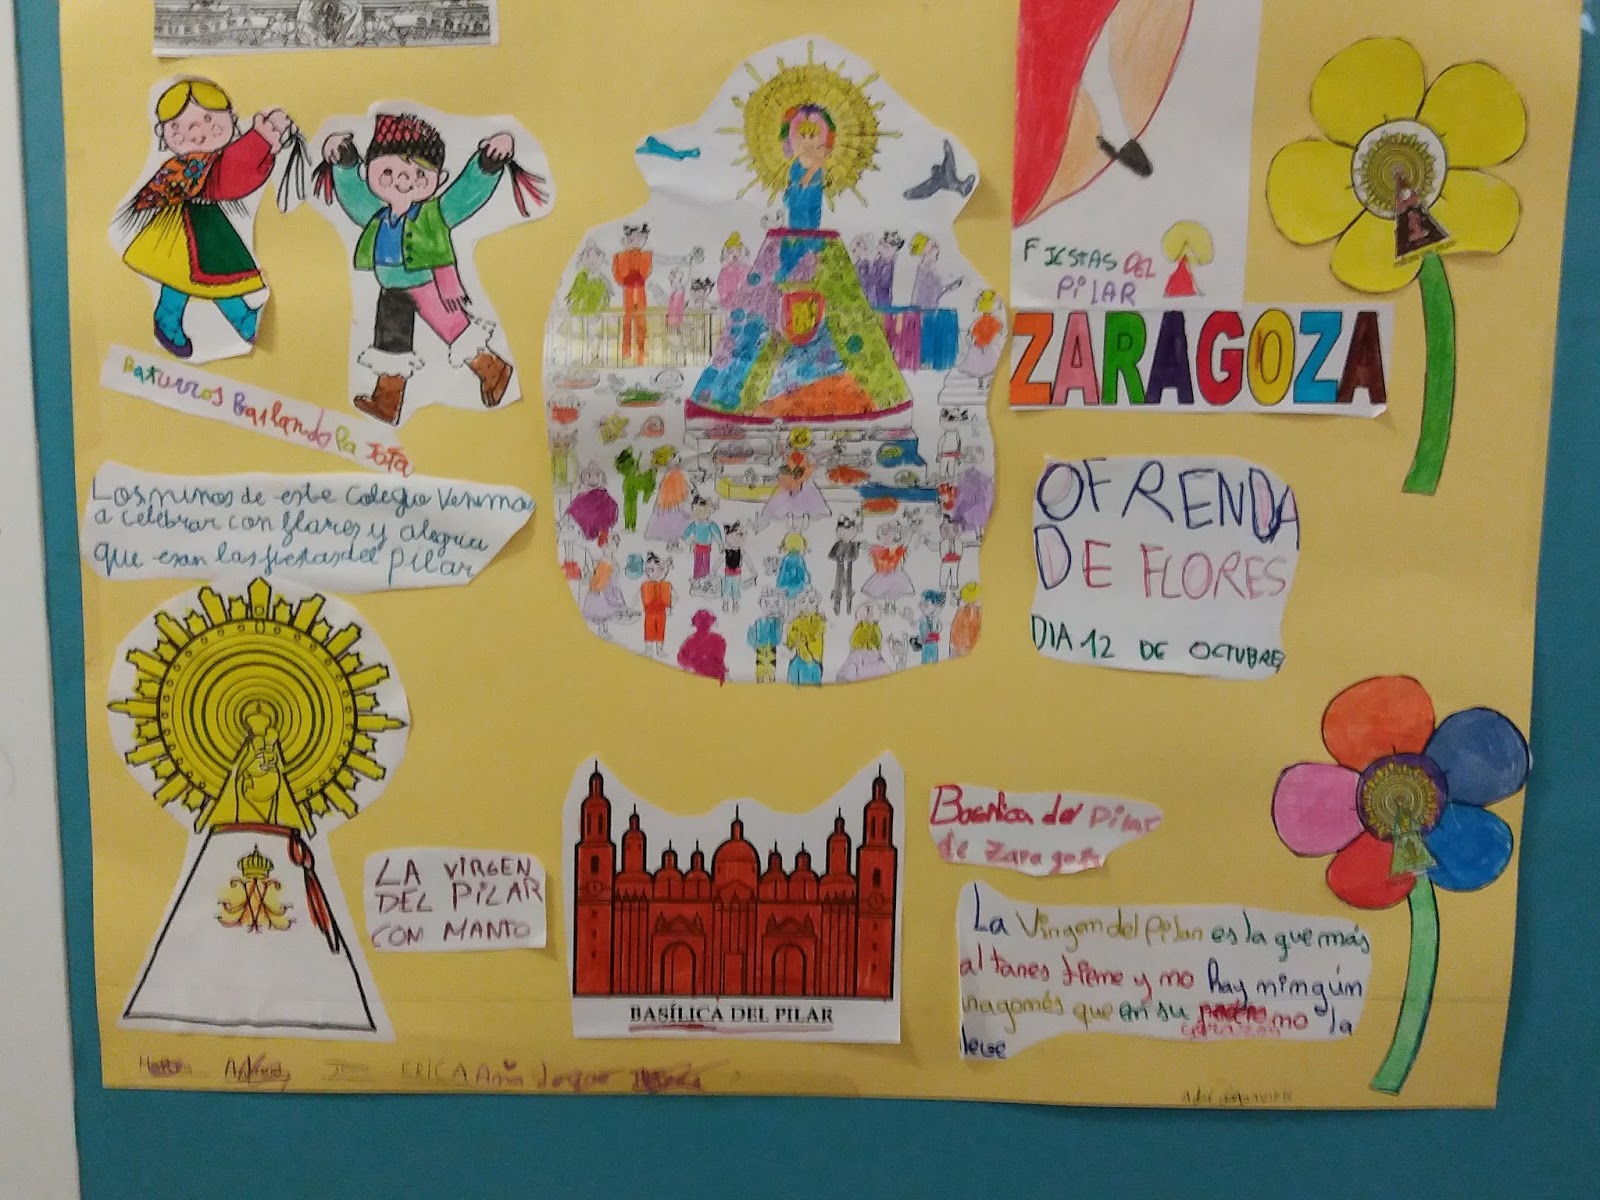 FIESTAS DEL
PILAR
ZARAGOZA
Baturros Bailando la Jota
Los niños de este Colegio Venimos
a celebrar con flores y alegria
que eran las fiestas del pilar
OFRENDA
DE FLORES
DIA 12 DE OCTUBRE
LA VIRGEN
DEL PILAR
CON MANTO
BASÍLICA DEL PILAR
Basilica del pilar
de zaragoza
La Virgen del pilar es la que más
altares tiene y no hay ningún
ragonés que en su no la
leve
ERICA